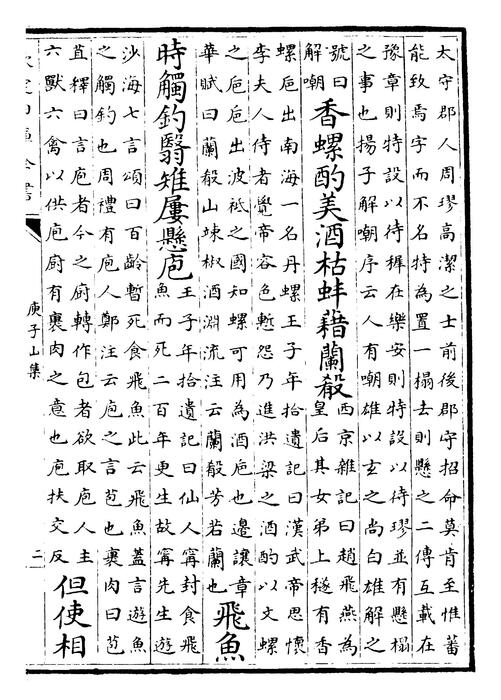 太守郡人周璆高潔之士前後郡守招命莫肯至惟蕃
能致焉字而不名特為置一榻去則懸之二傳互載在
豫章則特設以待穉在樂安則特設以待璆並有懸榻
之事也揚子解嘲序云人有嘲雄以玄之尚白雄解之
號曰
解嘲
香螺酌美酒枯蚌藉蘭殽
西京雜記曰趙飛燕為
皇后其女弟上襚有香
螺巵出南海一名丹螺王子年拾遺記曰漢武帝思懷
李夫人侍者覺帝容色慙怨乃進洪梁之酒酌以文螺
之巵巵出波祇之國知螺可用為酒巵也邊讓章
華賦曰蘭殽山竦椒酒淵流注云蘭殽芳若蘭也
飛魚
時觸釣翳雉屢懸庖
王子年拾遺記曰仙人寗封食飛
魚而死二百年更生故寗先生遊
沙海七言頌曰百齡暫死食飛魚此云飛魚蓋言遊魚
之觸釣也周禮有庖人鄭注云庖之言苞也裹肉曰苞
苴釋曰言庖者今之廚轉作包者欲取庖人主
六獸六禽以供庖廚有裹肉之意也庖扶交反
但使相
庾子山集
二